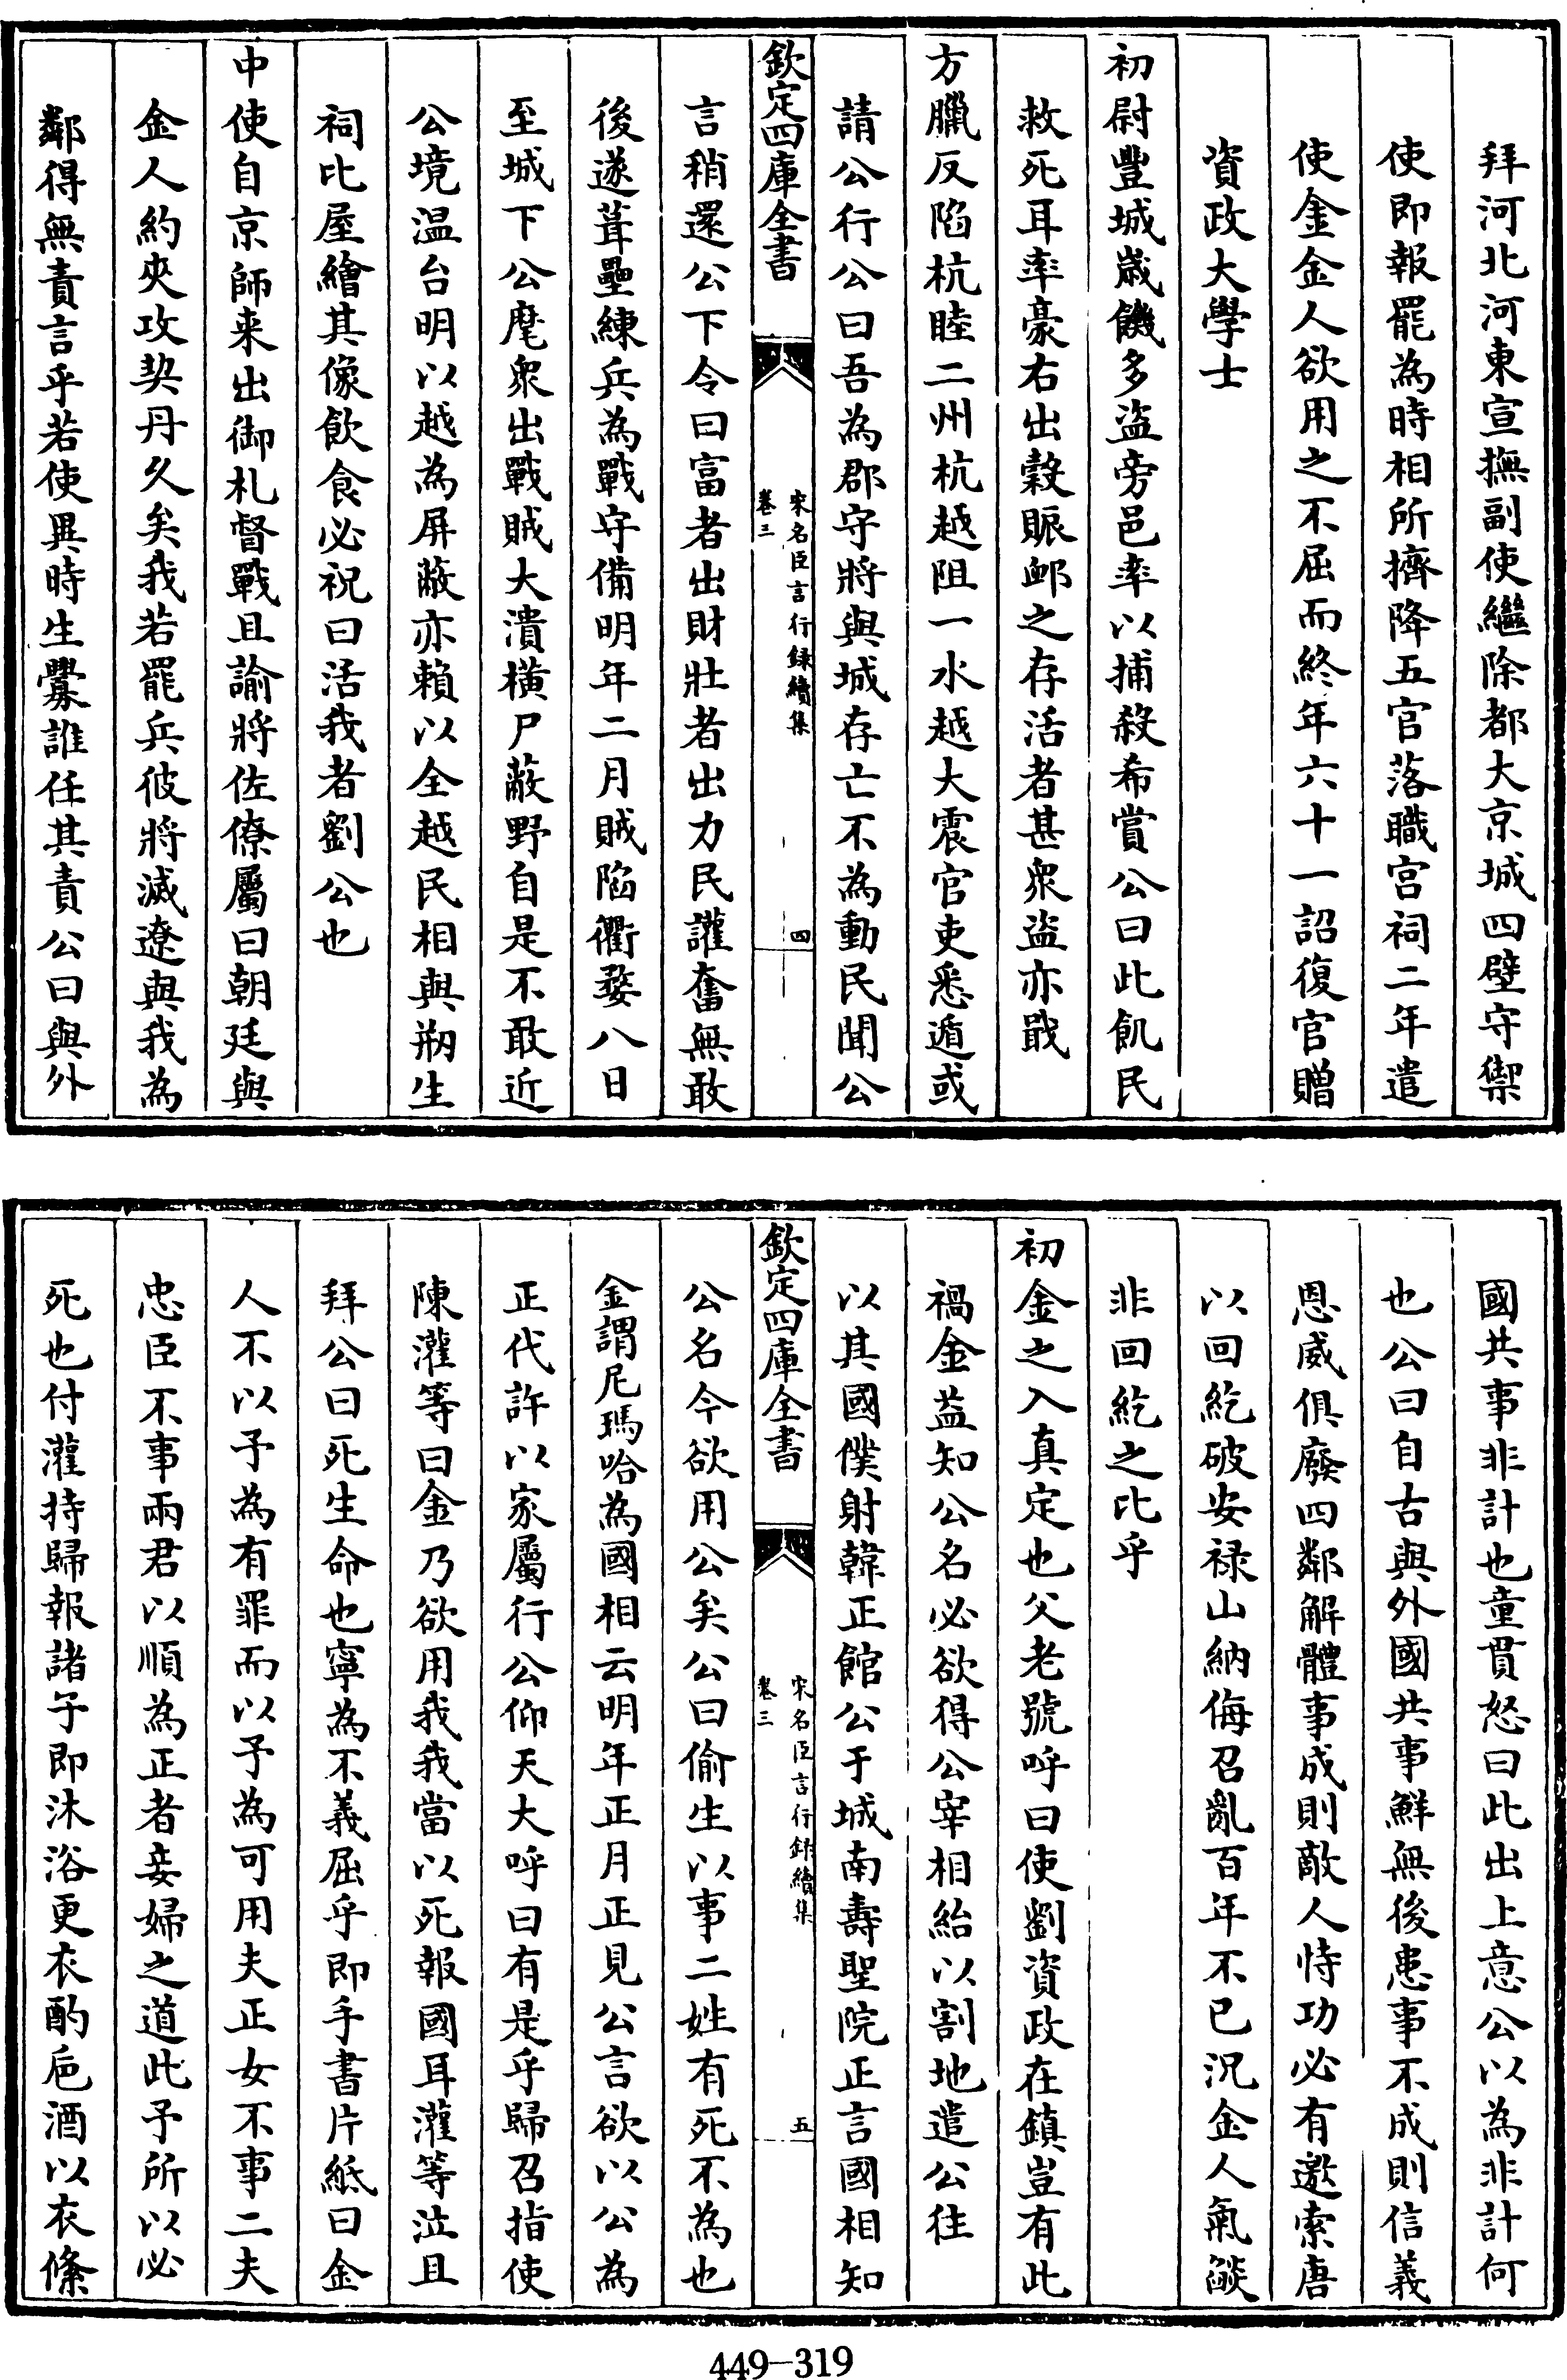 拜河北河東宣撫副使繼除都大京城四壁守禦
使即報罷為時相所擠降五官落職宮祠二年遣
使金金人欲用之不屈而終年六十一詔復官贈
資政大學士
初尉豐城歳饑多盜旁邑率以捕殺希賞公曰此飢民
救死耳率豪右出穀賑卹之存活者甚衆盜亦戢
方臘反陷杭睦二州杭越阻一水越大震官吏悉遁或
請公行公曰吾為郡守將與城存亡不為動民聞公
欽定四庫全書
宋名臣言行録續集
卷三
四
言稍還公下令曰富者出財壯者出力民讙奮無敢
後遂葺壘練兵為戰守備明年二月賊陷衢婺八日
至城下公麾衆出戰賊大潰橫尸蔽野自是不敢近
公境温台明以越為屏蔽亦賴以全越民相與刱生
祠比屋繪其像飲食必祝曰活我者劉公也
中使自京師来出御札督戰且諭將佐僚屬曰朝廷與
金人約夾攻契丹久矣我若罷兵彼將滅遼與我為
鄰得無責言乎若使異時生釁誰任其責公曰與外
國共事非計也童貫怒曰此出上意公以為非計何
也公曰自古與外國共事鮮無後患事不成則信義
恩威俱廢四鄰解體事成則敵人恃功必有邀索唐
以回紇破安禄山納侮召亂百年不已況金人氣燄
非回紇之比乎
初金之入真定也父老號呼曰使劉資政在鎮豈有此
禍金益知公名必欲得公宰相紿以割地遣公往
以其國僕射韓正館公于城南壽聖院正言國相知
欽定四庫全書
宋名臣言行録續集
卷三
五
公名今欲用公矣公曰偷生以事二姓有死不為也
金謂尼瑪哈為國相云明年正月正見公言欲以公為
正代許以家屬行公仰天大呼曰有是乎歸召指使
陳灌等曰金乃欲用我我當以死報國耳灌等泣且
拜公曰死生命也寧為不義屈乎即手書片紙曰金
人不以予為有罪而以予為可用夫正女不事二夫
忠臣不事兩君以順為正者妾婦之道此予所以必
死也付灌持歸報諸子即沐浴更衣酌巵酒以衣絛
449-319